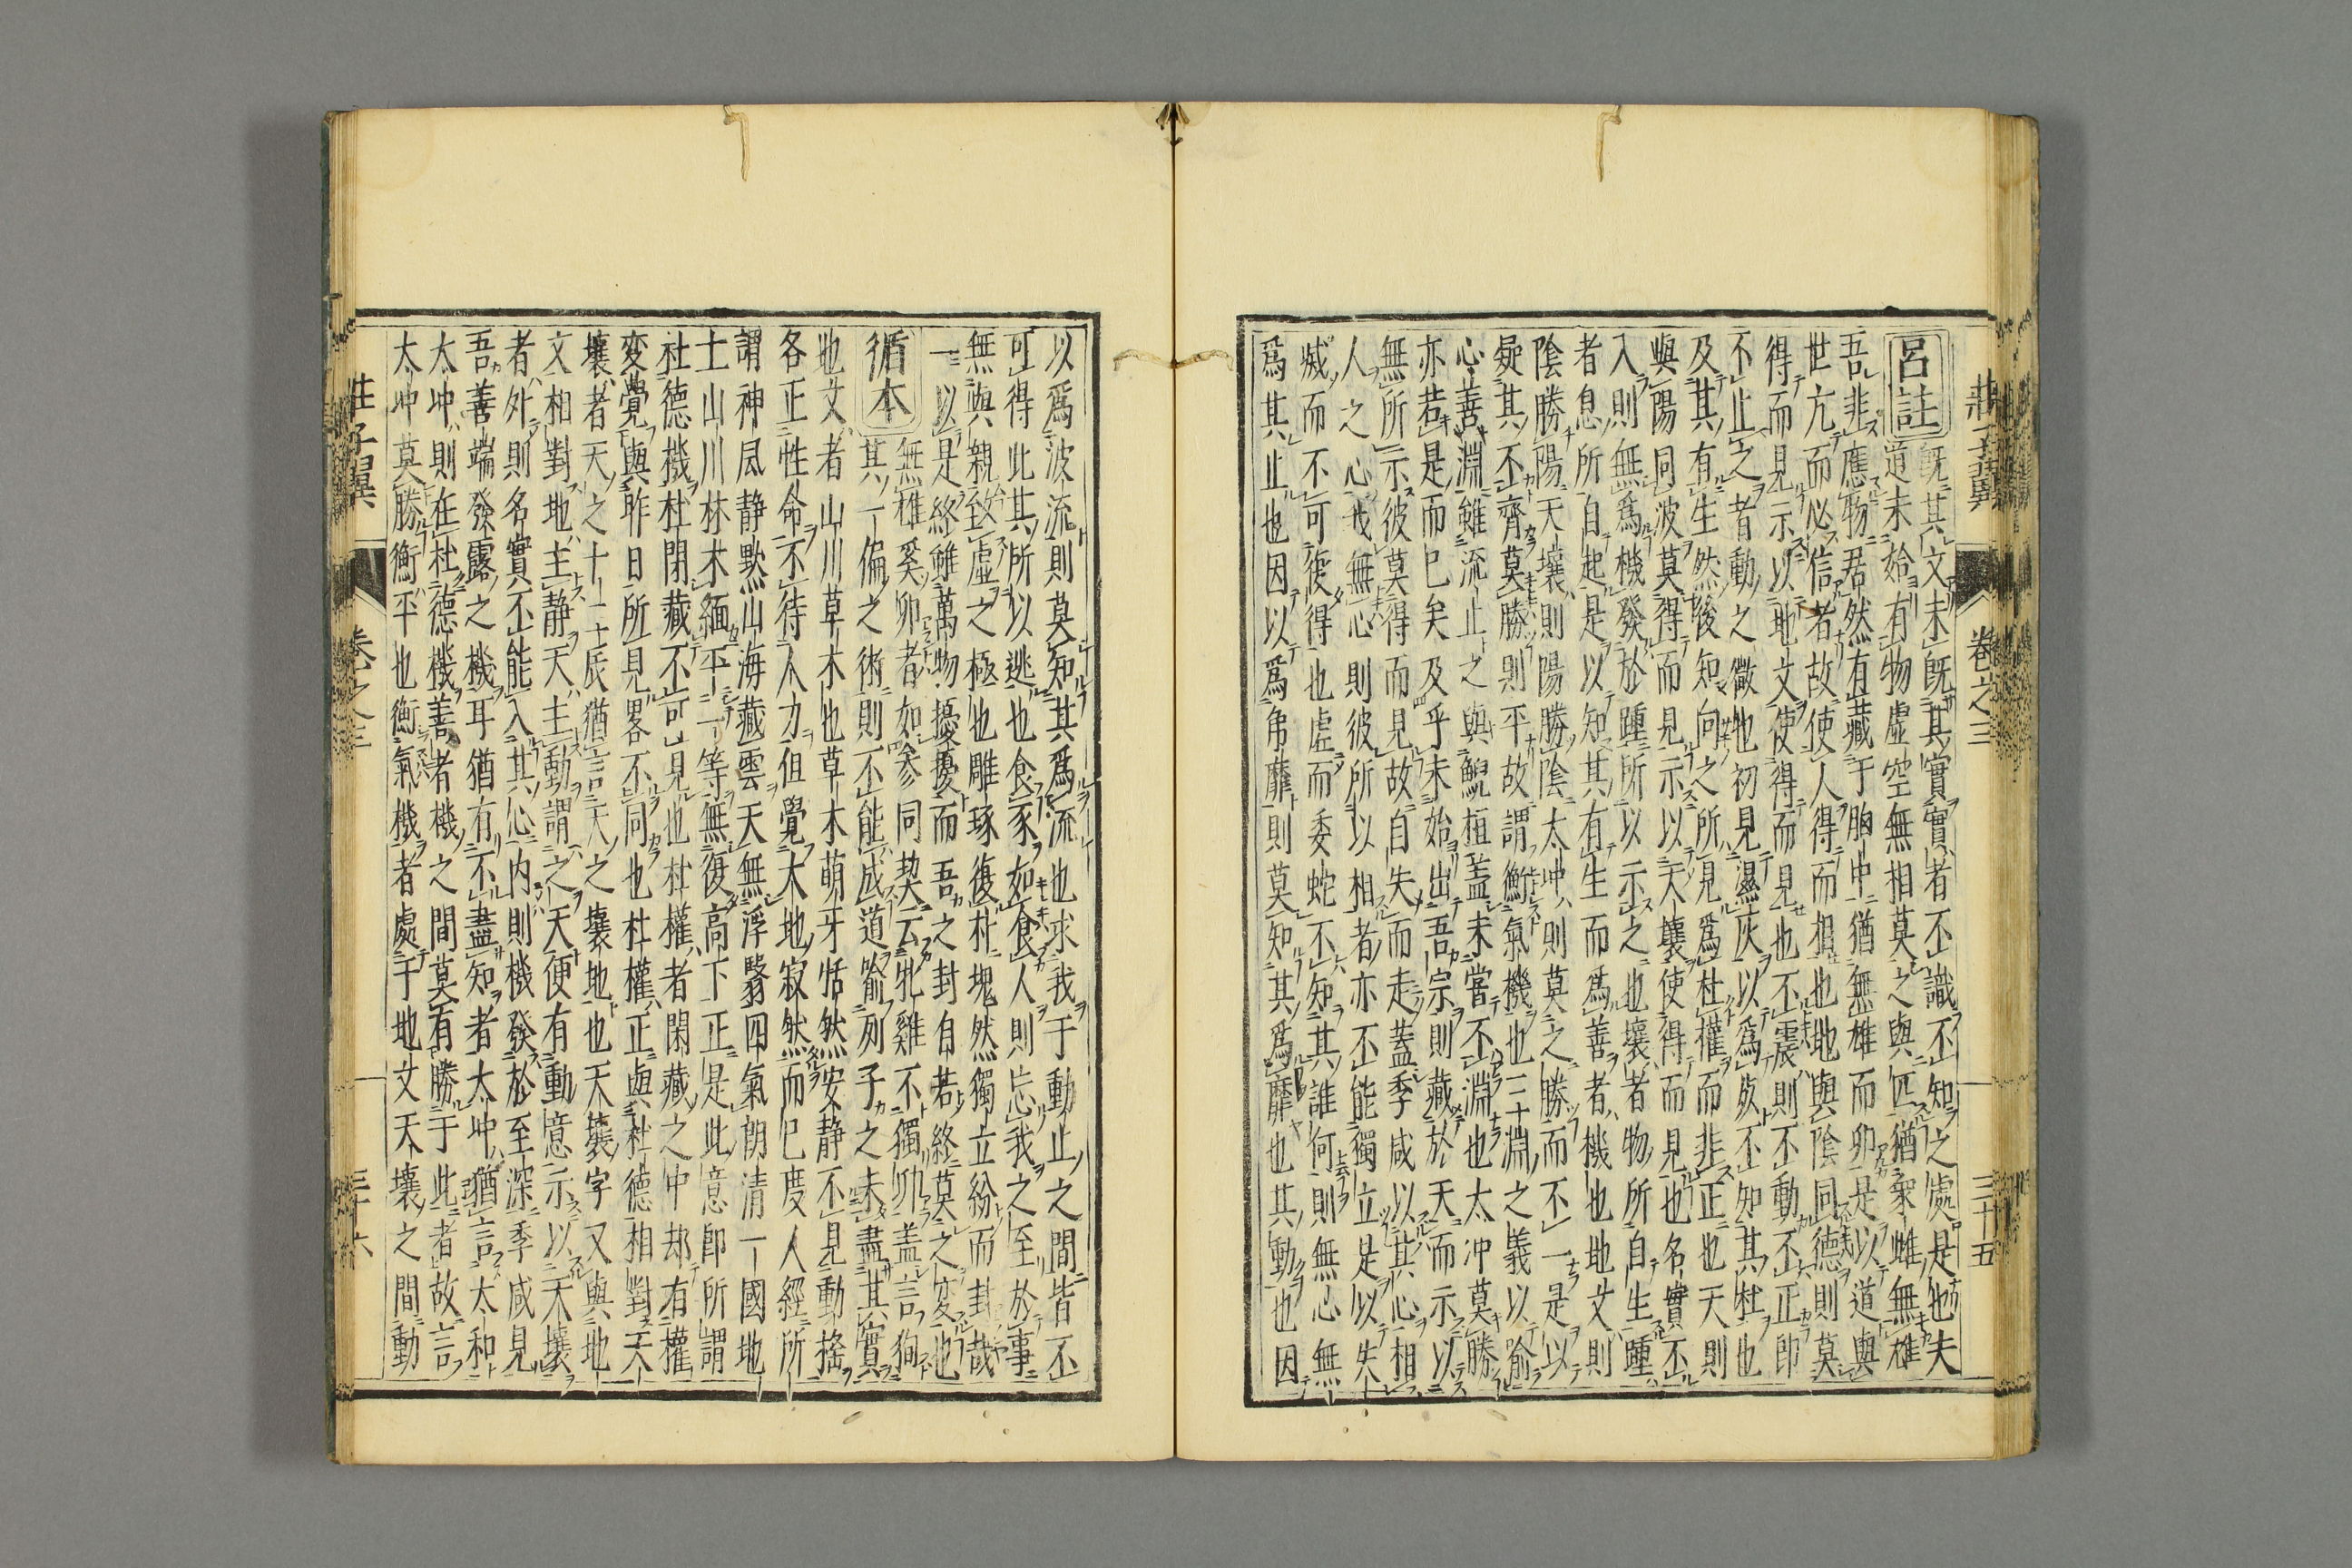 莊子翼 卷之三 三十五
呂註 既其文未既其實實者不識不知之處是也夫
道未始有物虛空無相莫之與匹猶衆雌無雄
吾非應物君然有藏于胸中猶無雄而卵是以道與
世亢而必信者故使人得而相也地與陰同德則莫
得而見示以地文使得而見也不震則不動不正即
不止之者動之微也初見濕灰以爲死不知其杜也
及其有生然後知向之所見爲杜權而非正也天則
與陽同波莫得而見示以天壤使得而見也名實不
入則無爲機發於踵所以示之也壤者物所自生踵
者息所自起是以知其有生而爲善者機也地文則
陰勝陽天壤則陽勝陰太冲則莫之勝而不一是以
疑其不齊莫勝則平故謂衡氣機也三淵之義以喻
心善淵雖流止之與鯢桓蓋未嘗不淵也太冲莫勝
亦若是而已矣及乎未始出吾宗則藏於天而示以
無所示彼莫得而見故自失而走蓋季咸以其心相
人之心我無心則彼所以相者亦不能獨立是以失
滅而不可復得也虛而委蛇不知其誰何則無心無
爲其止也因以爲弟靡則莫知其爲靡也其動也因
以爲波流則莫知其爲流也求我于動止之間皆不
可得此其所以逃也食豕如食人則忘我之至於事
無與親致虛之極也雕琢復朴塊然獨立紛而封哉
一以是終雖萬物擾擾而吾之封自若終莫之変也
循本 無雄奚卵者如参同契云牝雞不獨卵蓋言狗
其一偏之術則不能成道喻列子之未盡其實
也文者山川草木也草木萌牙恬然安静不見動搖
各正性命不待人力但覺大地寂然而已度人經所
謂神風静默山海藏雲天無浮翳四氣朗清一國地
土山川林木緬平一等無復高下正是此意即所謂
杜德機杜閉藏不可見也杜權者閑藏之中却有權
変覺與昨日所見畧不同也杜權正與杜德相對天
壤者天之十二辰猶言天之壤地也天壤字又與地
文相對地主静天主動謂之天便有動意示以天壤
者外則名實不能入其心内則機發於至深季咸見
吾善端發露之機耳猶有不盡知者太冲猶言太和
太冲則在杜德機善者機之間莫有勝于此者故言
太冲莫勝衡平也衡氣機者處于地文天壤之間動
莊子翼 卷之三 三十六